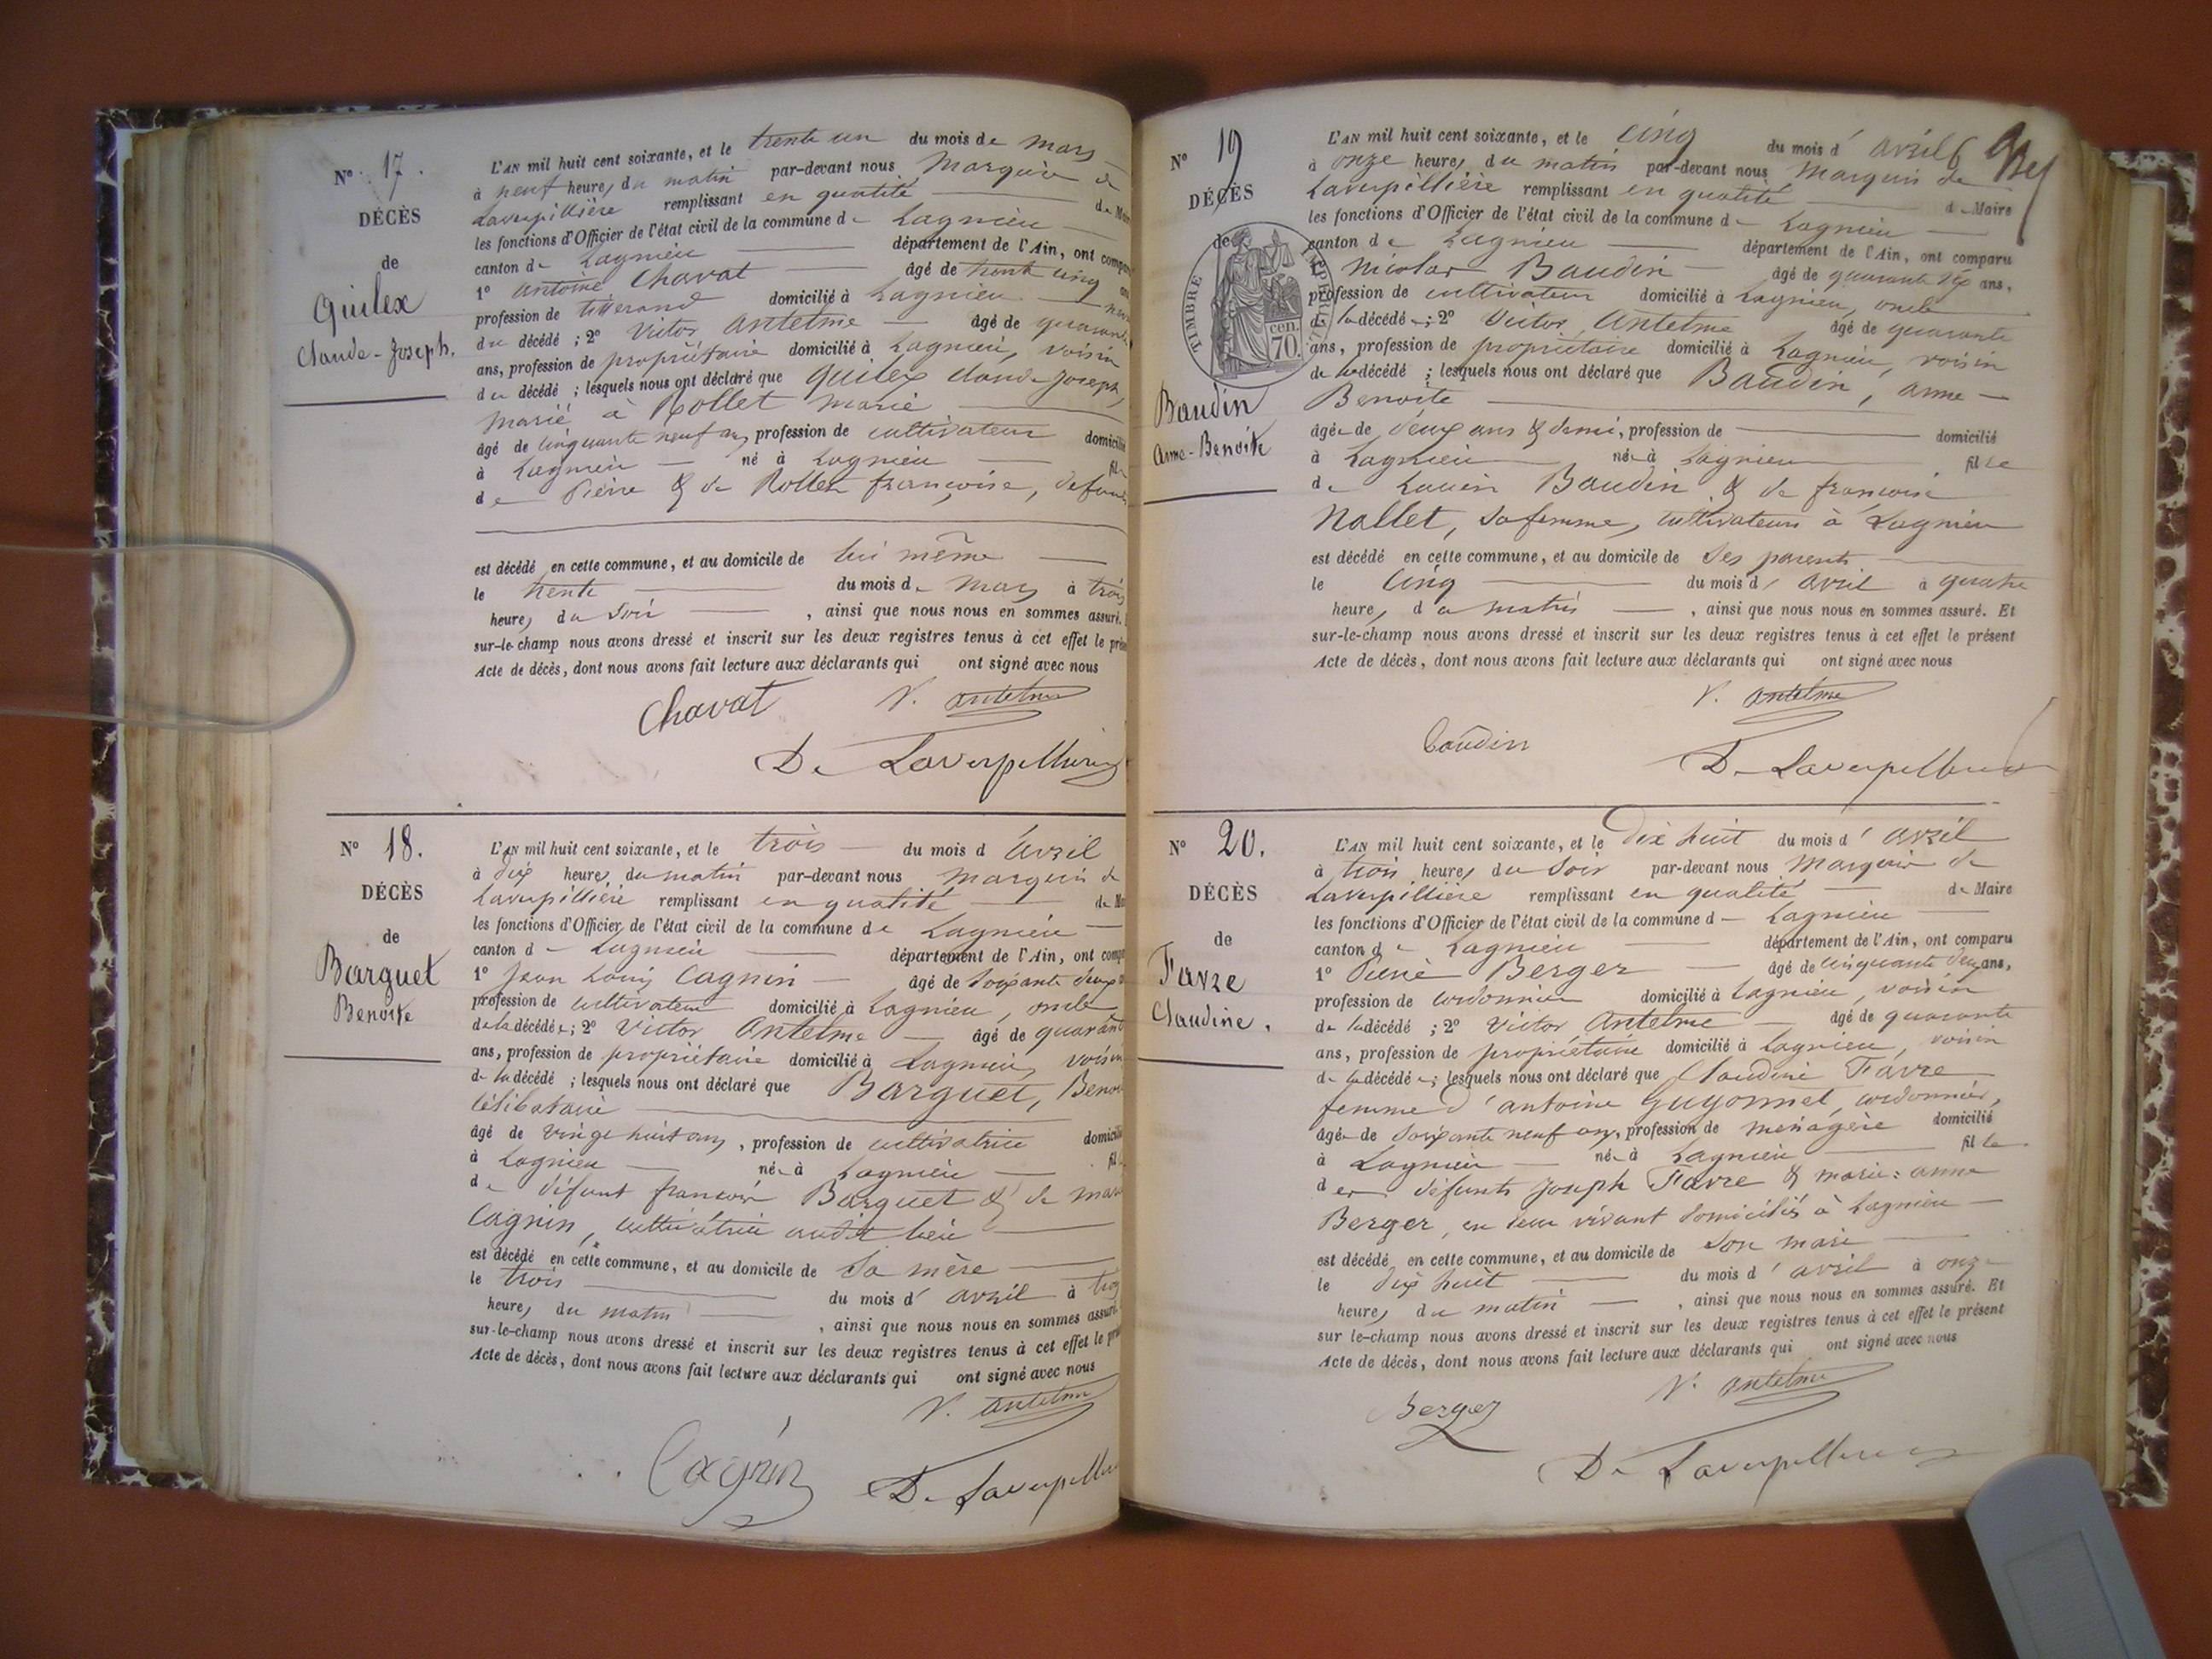 N° 17.
DÉCÈS
de
Quilex
Claude-Joseph.
L'AN mil huit cent soixante, et le trente un du mois de mars
à neuf heures du matin par-devant nous Marquis de
Laverpillière remplissant en qualité de
les fonctions d'Officier de l'état civil de la commune de Lagnieu
canton de Lagnieu département de l'Ain, ont
1° antoine Chavat âgé de trente cinq
profession de tisserand domicilié à Lagnieu
du décédé ; 2° Victor Antelme âgé de quarante
ans, profession de propriétaire domicilié à Lagnieu, voisin
du décédé ; lesquels nous ont déclaré que Quilex claude Joseph,
marié à Rollet marie
âgé de cinquante neuf ans, profession de cultivateur domicilié
à Lagnieu né à Lagnieu fils
de Pierre & de Rollet françoise,
est décédé en cette commune, et au domicile de lui même
le trente du mois de mars à trois
heures du soir , ainsi que nous nous en sommes assuré.
sur-le-champ nous avons dressé et inscrit sur les deux registres tenus à cet effet le
Acte de décès, dont nous avons fait lecture aux déclarants qui ont signé avec nous
Chavat V. antelme
De Laverpilliere
N° 18.
DÉCÈS
de
Barguet
Benoite
L'AN mil huit cent soixante, et le trois du mois d'avril
à dix heures du matin par-devant nous marquis de
Laverpillière remplissant en qualité de
les fonctions d'Officier de l'état civil de la commune de Lagnieu
canton de Lagnieu département de l'Ain, ont
1° Jean Louis Cagnin âgé de soixante deux
profession de cultivateur domicilié à Lagnieu, oncle
de la décédée ; 2° Victor Antelme âgé de quarante
ans, profession de propriétaire domicilié à Lagnieu, voisin
de la décédé ; lesquels nous ont déclaré que Barguet,
célibataire
âgé de vingt huit ans, profession de cultivatrice domicilié
à Lagnieu née à Lagnieu
de défunt françois Barguet & de
Cagnin, cultivatrice audit lieu
est décédé en cette commune, et au domicile de sa mère
le trois du mois d'avril à trois
heures du matin , ainsi que nous nous en sommes assuré.
sur-le-champ nous avons dressé et inscrit sur les deux registres tenus à cet effet le
Acte de décès, dont nous avons fait lecture aux déclarants qui ont signé avec nous
V. antelme
Cagnin De Laverpilliere
N° 19
DÉCÈS
de
TIMBRE IMPÉRIAL
70. cen.
Baudin
Anne-Benoite
L'AN mil huit cent soixante, et le cinq du mois d'avril
à onze heures du matin par-devant nous Marquis de
Laverpillière remplissant en qualité de Maire
les fonctions d'Officier de l'état civil de la commune de Lagnieu
canton de Lagnieu département de l'Ain, ont comparu
1° Nicolas Baudin âgé de quarante six ans,
profession de cultivateur domicilié à Lagnieu, oncle
de la décédée ; 2° Victor Antelme âgé de quarante
ans, profession de propriétaire domicilié à Lagnieu, voisin
de la décédé ; lesquels nous ont déclaré que Baudin, anne
Benoite
âgée de deux ans & demi, profession de domicilié
à Lagnieu née à Lagnieu fille
de Baudin & de françoise
Nallet, sa femme, cultivateurs à Lagnieu
est décédé en cette commune, et au domicile de ses parents
le cinq du mois d'avril à quatre
heures du matin , ainsi que nous nous en sommes assuré. Et
sur-le-champ nous avons dressé et inscrit sur les deux registres tenus à cet effet le présent
Acte de décès, dont nous avons fait lecture aux déclarants qui ont signé avec nous
V. antelme
Baudin
De Laverpilliere
N° 20.
DÉCÈS
de
Favre
Claudine.
L'AN mil huit cent soixante, et le dix huit du mois d'avril
à trois heures du soir par-devant nous Marquis de
Laverpillière remplissant en qualité de Maire
les fonctions d'Officier de l'état civil de la commune de Lagnieu
canton de Lagnieu département de l'Ain, ont comparu
1° Pierre Berger âgé de cinquante deux ans,
profession de cordonnier domicilié à Lagnieu, voisin
de la décédé ; 2° Victor Antelme âgé de quarante
ans, profession de propriétaire domicilié à Lagnieu, voisin
de la décédée ; lesquels nous ont déclaré que Claudine Favre
femme d'antoine Guyonnet, cordonnier,
âgée de soixante neuf ans, profession de ménagère domicilié
à Lagnieu née à Lagnieu fille
des défunts Joseph Favre & marie-anne
Berger, en leur vivant domiciliés à Lagnieu
est décédé en cette commune, et au domicile de son mari
le dix huit du mois d'avril à onze
heures du matin , ainsi que nous nous en sommes assuré. Et
sur le-champ nous avons dressé et inscrit sur les deux registres tenus à cet effet le présent
Acte de décès, dont nous avons fait lecture aux déclarants qui ont signé avec nous
V. antelme
Berger
De Laverpilliere